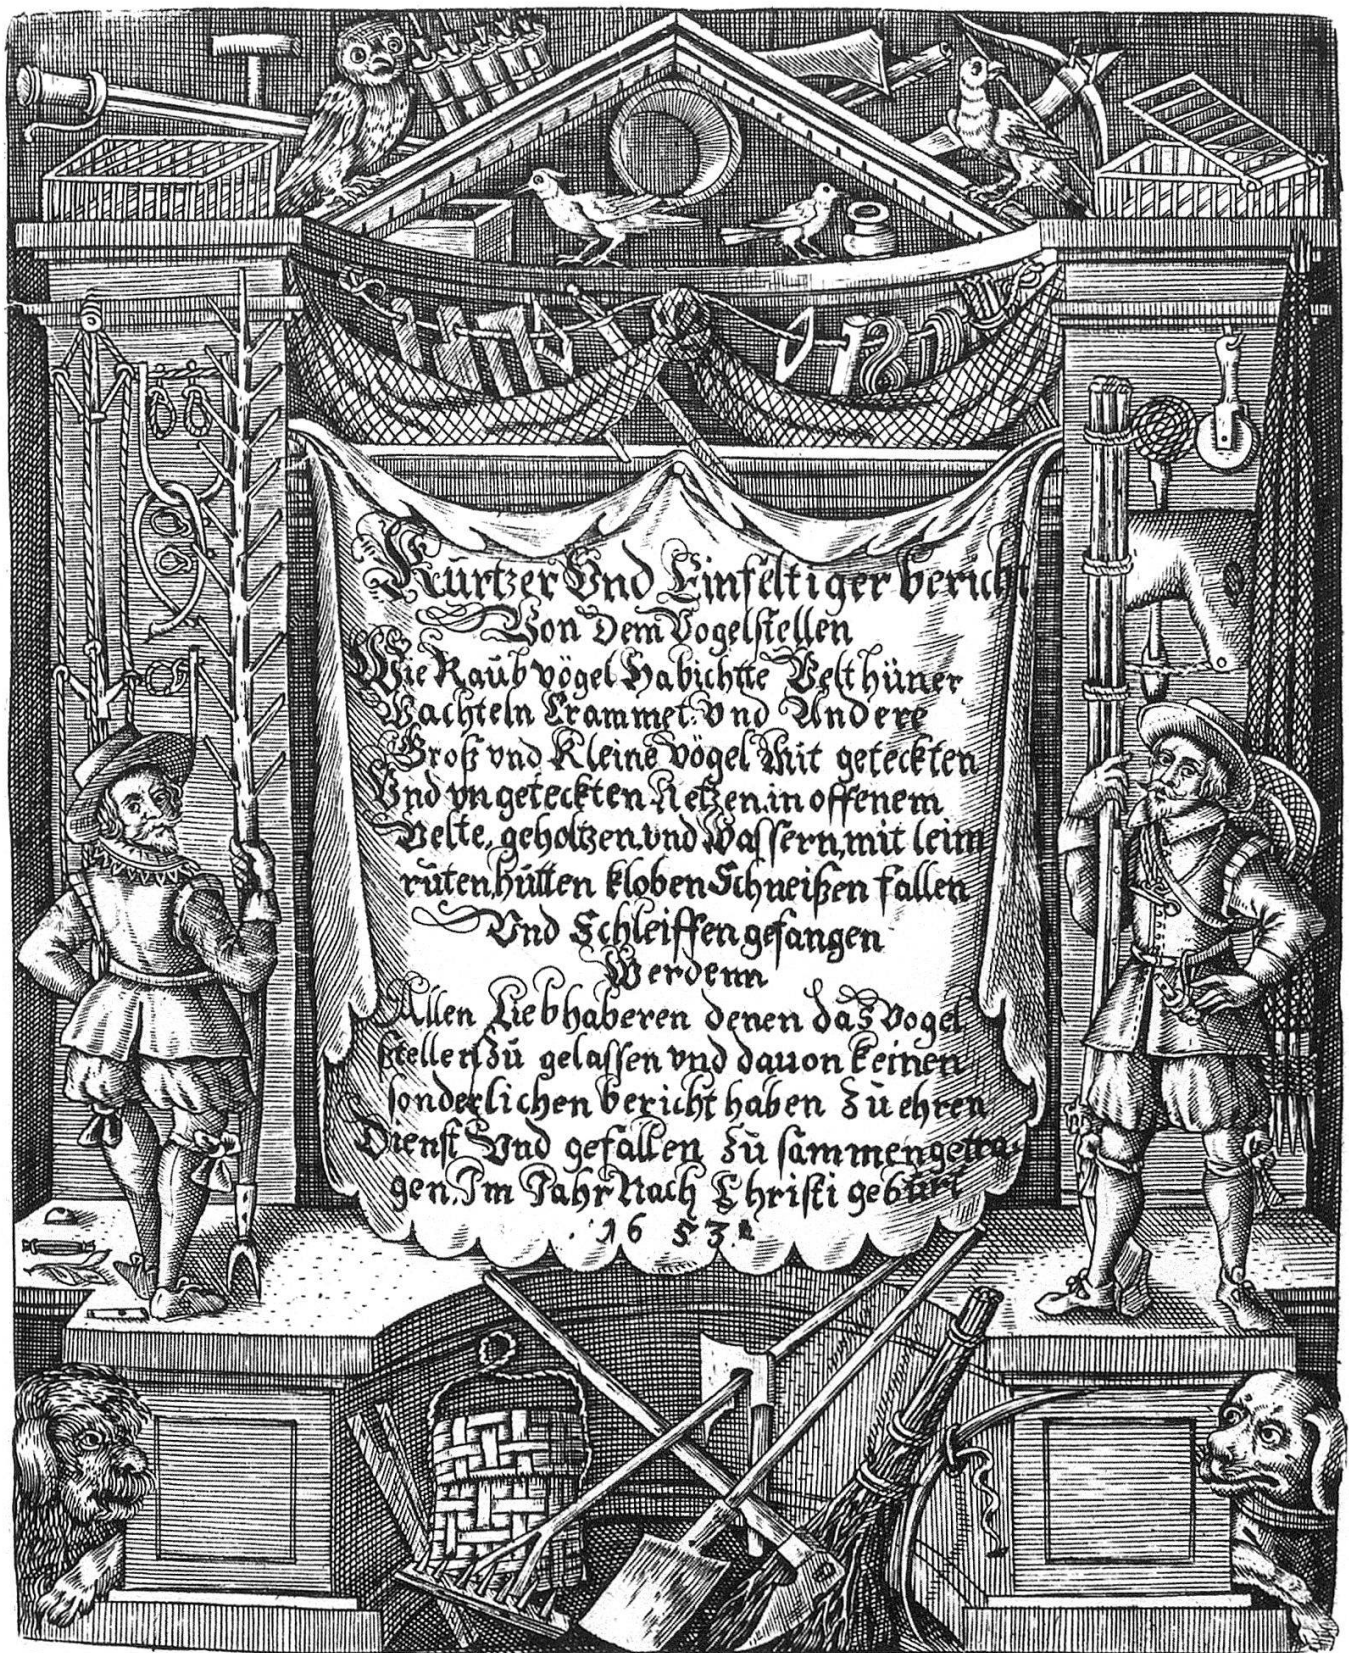 Kurtzer Vnd Einfeltiger bericht
Von dem Vogelstellen
Wie Raub vögel Habichtte Velt hüner
Wachteln Crammet: vnd Andere
Groß vnd Kleine vögel Mit geteckten
Vnd vngeteckten Netzen in offenem
Velte, geholtzen vnd Wassern, mit leim
ruten hütten kloben Schneißen fallen
Vnd Schleiffen gefangen
Werdenn
Allen Liebhaberen denen das Vogel
stellen zu gelassen vnd dauon keinen
sonderlichen bericht haben zu ehren
Dienst Vnd gefallen zu sammen getra-
gen. Im Jahr Nach Christi geburt
1653.